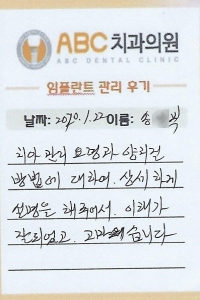 ABC 치과의원
ABC DENTAL CLINIC
임플란트 관리 후기
날짜: 2020.1.22 이름: 송
치아 관리 요령과 양치질
방법에 대하여. 상세하게
설명을 해주어서. 이해가
잘되었고. 고마웠습니다